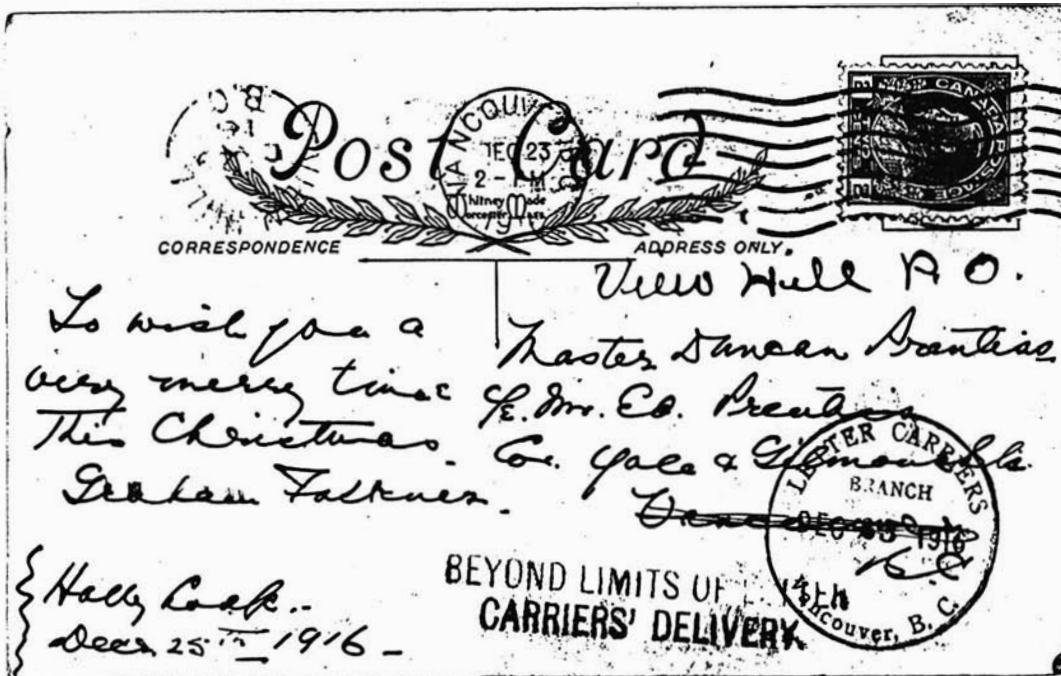 Post Card
VANCOUVER
DEC 23
2 - PM
Whitney Made
Worcester, Mass.
CANADA POSTAGE
CORRESPONDENCE
ADDRESS ONLY.
View Hill P.O.
To wish you a
very merry time
This Christmas.
Graham Falkner.
Holly Lodge..
Decr 25th 1916 -
Master Duncan Prentiss
Mr. Ed. Prentiss
Cor. Yale & Gilmour
B.C.
LETTER CARRIERS
BRANCH
DEC 23 1916
Vancouver, B. C.
BEYOND LIMITS OF
CARRIERS' DELIVERY.